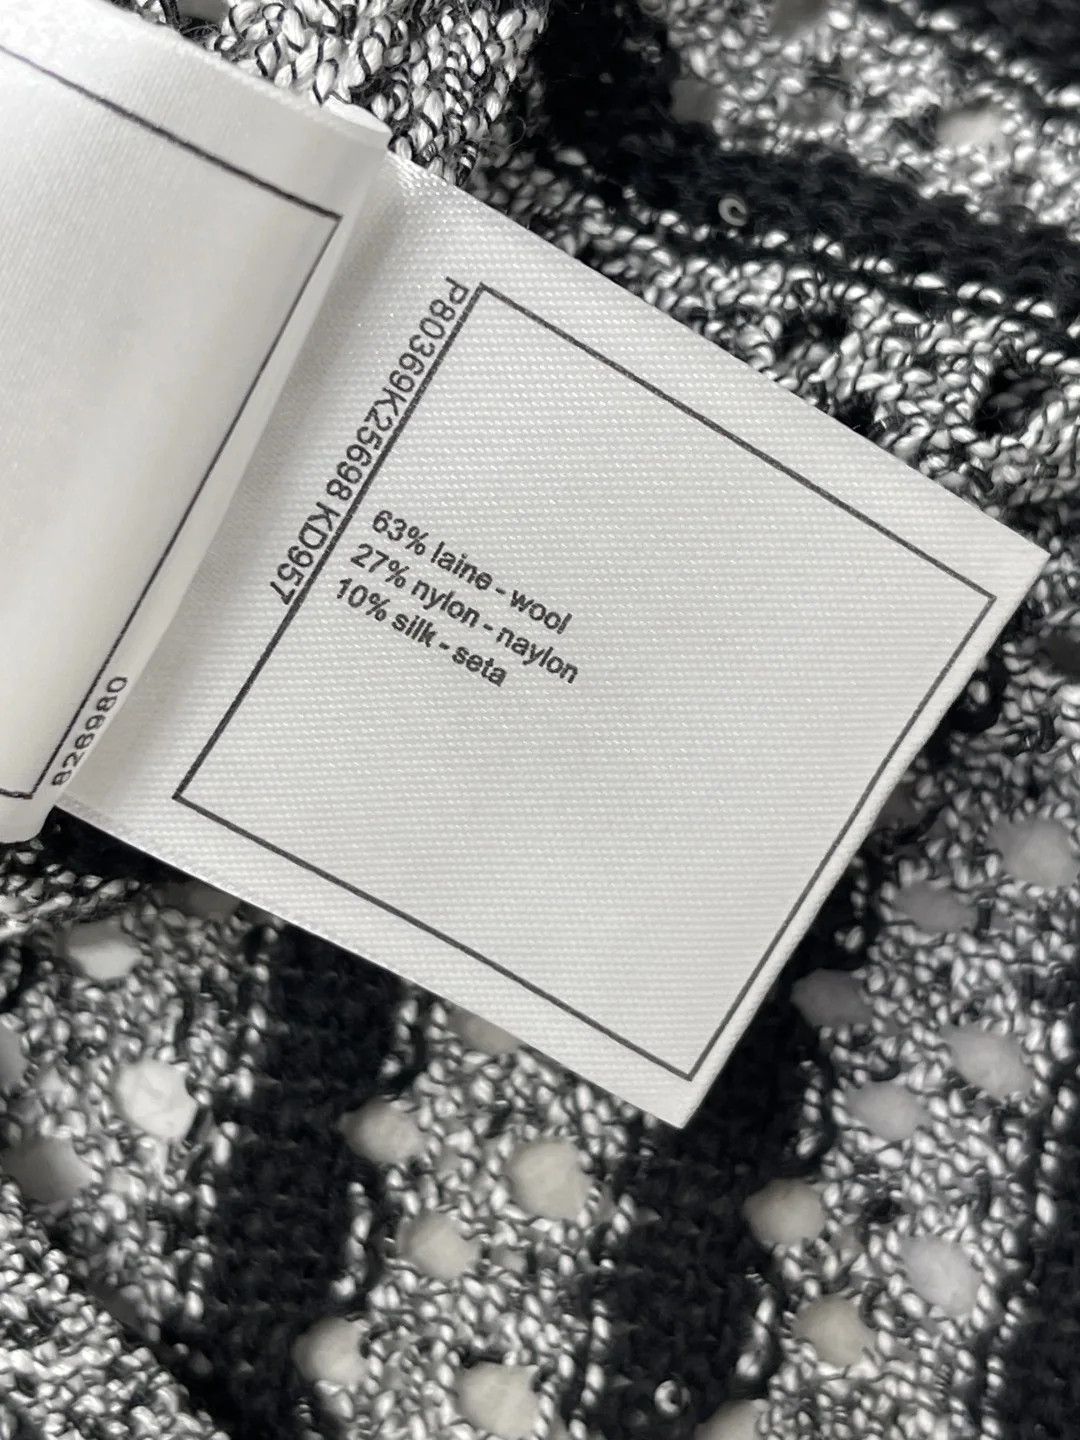 P80369K25698 KD957
63% laine - wool
27% nylon - naylon
10% silk - seta
826980